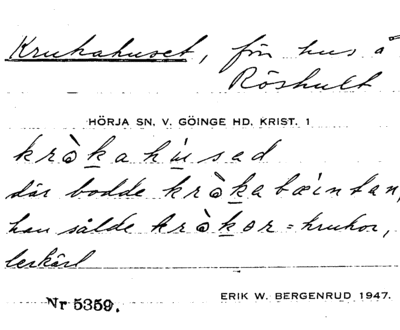 Krukahuset, förr hus å
Röshult
HÖRJA SN. V. GÖINGE HD. KRIST. 1
krò̱kahúsad
där bodde krò̱kabæintan,
han sålde krò̱kər = krukor,
lerkärl
Nr 5359.
ERIK W. BERGENRUD 1947.